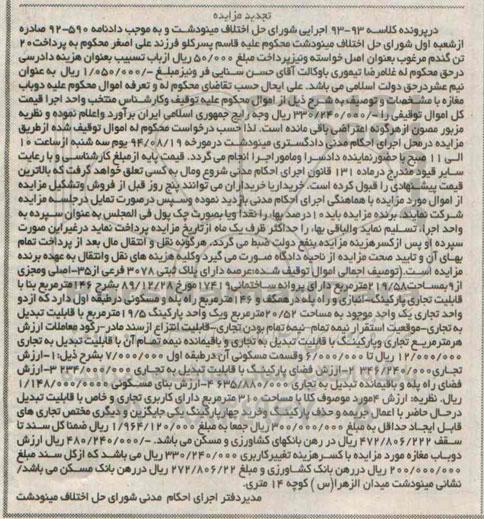 تجدید مزایده
درپرونده کلاسه ۹۳-۹۳ اجرایی شورای حل اختلاف مینودشت و به موجب دادنامه ۵۹۰-۹۲ صادره
ازشعبه اول شورای حل اختلاف مینودشت محکوم علیه قاسم پسرکلو فرزند علی اصغر محکوم به پرداخت۲۰
تن گندم مرغوب بعنوان اصل خواسته ونیزپرداخت مبلغ ۵۰/۰۰۰ ریال ازباب تسبیب بعنوان هزینه دادرسی
درحق محکوم له غلامرضا تیموری باوکالت آقای حسن سنایی فر ونیزمبلغ -/۱/۰۵۰/۰۰۰ ریال به عنوان
نیم عشردرحق دولت اسلامی می باشد. علی ایحال حسب تقاضای محکوم له و تعرفه اموال محکوم علیه دوباب
مغازه با مشخصات و توصیف به شرح ذیل از اموال محکوم علیه توقیف وکارشناس منتخب واحد اجرا قیمت
کل اموال توقیفی را -/۳۳۰/۲۴۰/۰۰۰ ریال وجه رایج جمهوری اسلامی ایران برآورد واعلام نموده و نظریه
مزبور مصون ازهرگونه اعتراضی باقی مانده است. لذا حسب درخواست محکوم له اموال توقیف شده ازطریق
مزایده درمحل اجرای احکام مدنی دادگستری مینودشت درمورخه ۹۴/۰۸/۱۹ یوم سه شنبه ازساعت ۱۰
الی ۱۱ صبح با حضورنماینده دادسرا ومامور اجرا انجام می گردد. قیمت پایه ازمبلغ کارشناسی و با رعایت
سایر قیود مندرج درماده ۱۳۱ قانون اجرای احکام مدنی شروع ومال به کسی تعلق خواهد گرفت که بالاترین
قیمت پیشنهادی را قبول کرده است. خریداریا خریداران می توانند پنج روز قبل از فروش وتشکیل مزایده
از اموال مورد مزایده با هماهنگی اجرای احکام مدنی بازدید نموده وسپس درصورت تمایل درجلسه مزایده
شرکت نمایند. برنده مزایده باید ۱۰درصد بهارا نقدا ویا بصورت چک پول فی المجلس به عنوان سپرده به
واحد اجرا، تسلیم نماید والباقی بها، را حداکثر ظرف یک ماه ازتاریخ مزایده پرداخت نماید درغیراین صورت
سپرده او پس ازکسرهزینه مزایده بنفع دولت ضبط می گردد. هرگونه نقل و انتقال مال بعد از پرداخت تمام
بهای آن و تایید صحت مزایده از ناحیه دادگاه صورت می گیرد وکلیه هزینه های نقل وانتقال به عهده برنده
مزایده است.(توصیف اجمالی اموال توقیف شده:عرصه دارای پلاک ثبتی ۳۰۷۸ فرعی از۳۵-اصلی ومجزی
از۹بمساحت۲۱۹/۵۸مترمربع دارای پروانه ساختمانی۱۷۴۱۹مورخ ۸۹/۱۲/۲۸ بشرح ۱۴۶مترمربع بنا با
قابلیت تجاری پارکینگ-انباری و راه پله درهمکف و ۱۴۶مترمربع راه پله و مسکونی درطبقه اول دارد که ازدو
واحد تجاری یک واحد موجود به مساحت ۲۰/۵۲مترمربع ویک واحد پارکینگ ۱۹/۵مترمربع با قابلیت تبدیل
به تجاری-موقعیت استقرار نیمه تمام-نیمه تمام بودن تجاری-قابلیت انتزاع ازسند مادر-رکود معاملات ارزش
هرمترمربع تجاری وپارکینگ با قابلیت تبدیل به تجاری و باقیمانده نیمه تمام آن با قابلیت تبدیل به تجاری
۱۲/۰۰۰/۰۰۰ ریال تا ۶/۰۰۰/۰۰۰ وقسمت مسکونی آن درطبقه اول ۷/۰۰۰/۰۰۰ بشرح ذیل:۱-ارزش
تجاری۲۴۶/۲۴۰/۰۰۰ ۲-ارزش فضای پارکینگ با قابلیت تبدیل به تجاری ۲۳۴/۰۰۰/۰۰۰ ۳-ارزش
فضای راه پله و باقیمانده تبدیل به تجاری ۶۳۵/۸۸۰/۰۰۰ ۴-ارزش بنای مسکونی ۱/۱۴۸/۰۰۰/۰۰۰
ریال. نظریه: ارزش ۴مورد موصوف کلا با مساحت ۳۱۰ مترمربع دارای کاربری تجاری و خاص با قابلیت تبدیل
درحال حاضر با اعمال جریمه و حذف پارکینگ وخرید چهارپارکینگ یکی جایگزین و دیگری مختص تجاری های
قابل ایجاد حداقل به مبلغ ۳۰۰/۰۰۰/۰۰۰ ریال جمعا به مبلغ ۱/۹۶۴/۱۲۰/۰۰۰ ریال ضمنا کل سند تا
سقف ۴۷۲/۸۰۶/۲۲۲ ریال در رهن بانکهای کشاورزی و مسکن می باشد. -/۴۸۰/۲۴۰/۰۰۰ ریال ارزش
دوباب مغازه مورد مزایده با کسرهزینه تغییرکاربری ۳۳۰/۲۴۰/۰۰۰ ریال می باشد که ازکل سند مبلغ
۲۰۰/۰۰۰/۰۰۰ ریال دررهن بانک کشاورزی و مبلغ ۲۷۲/۸۰۶/۲۲ ریال دررهن بانک مسکن می باشد/
نشانی مینودشت میدان الزهرا(س ) کوچه ۱۴ متری.
مدیردفتر اجرای احکام مدنی شورای حل اختلاف مینودشت